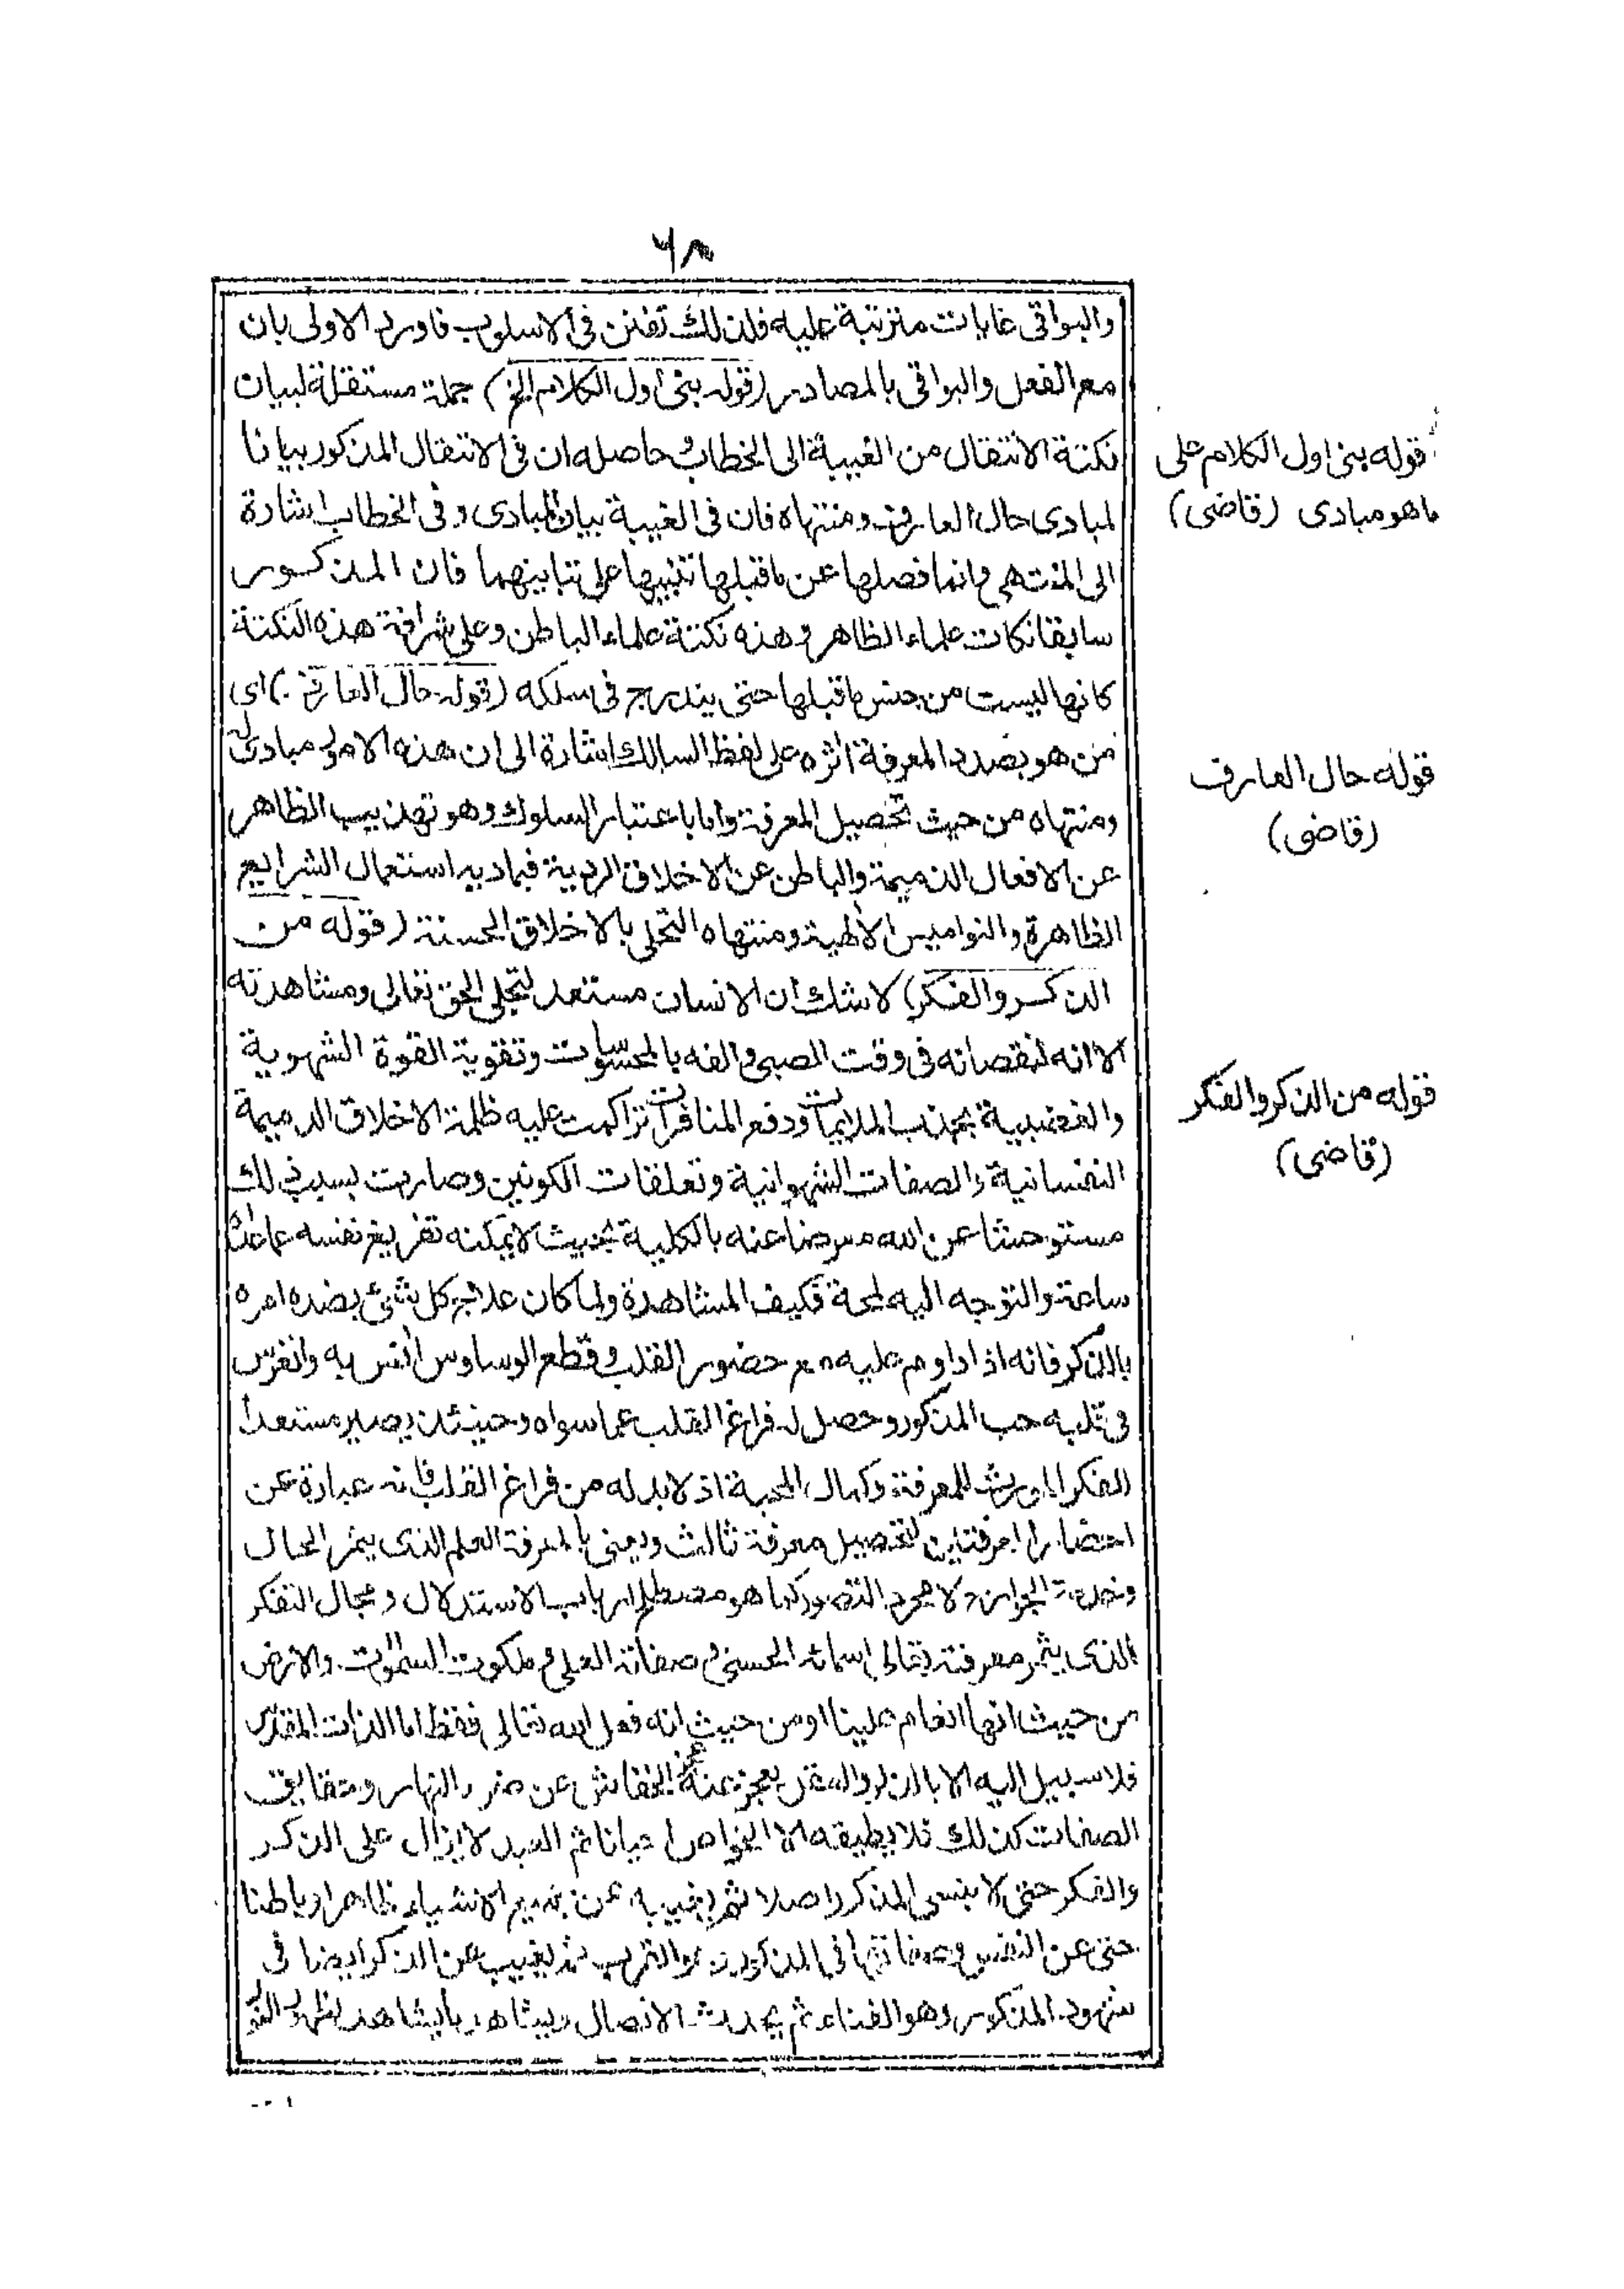 ٦٨
والبواقى غايات مترتبة عليه فلذلك تفنن فى الاسلوب فاورد الاولى بان
مع الفعل والبواقى بالمصادر (قوله بنى اول الكلام الخ) جملة مستقلة لبيان
نكتة الانتقال من الغيبة الى الخطاب حاصله ان فى الانتقال المذكور بيانا
لمبادى حال العارف ومنتهاه فان فى الغيبة بيان المبادى وفى الخطاب اشارة
الى المنتهى وانما فصلها عن ما قبلها تنبيها على تباينهما فان المذكور
سابقا نكات علماء الظاهر وهذه نكتة علماء الباطن وعلى شرافة هذه النكتة
كانها ليست من جنس ما قبلها حتى يندرج فى سلكه (قوله حال العارف) اى
من هو بصدد المعرفة اثره على لفظ السالك اشارة الى ان هذه الامور مبادى له
ومنتهاه من حيث تحصيل المعرفة واما باعتبار السلوك وهو تهذيب الظاهر
عن الافعال الذميمة والباطن عن الاخلاق الردية فمباديه استعمال الشرايع
الظاهرة والنواميس الالهية ومنتهاه التحلى بالاخلاق الحسنة (قوله من
الذكر والفكر) لا شك ان الانسان مستعد لتجلى الحق تعالى ومشاهدته
الا انه لنقصانه فى وقت الصبى والفه بالمحسوسات وتقوية القوة الشهوية
والغضبية بجذب الملايمات ودفع المنافرات تراكمت عليه ظلمة الاخلاق الذميمة
النفسانية والصفات الشهوانية وتعلقات الكونين وصارت بسبب ذلك
مستوحشا عن الله معرضا عنه بالكلية بحيث لا يمكنه تفريغ نفسه عما
ساعة والتوجه اليه لمحة فكيف المشاهدة ولما كان علاج كل شئ بضده امره
بالذكر فانه اذا داوم عليه مع حضور القلب وقطع الوساوس انس به وانغرس
فى قلبه حب المذكور وحصل له فراغ القلب عما سواه وحينئذ يصير مستعدا
الفكر المورث للمعرفة وكمال المحبة اذ لا بد له من فراغ القلب فانه عبارة عن
احضار معرفتين لتحصيل معرفة ثالث ويعنى بالمعرفة العلم الذى يثمر الحال
وخدمة الجوارح لا مجرد التصور كما هو مصطلح ارباب الاستدلال ومجال التفكر
الذى يثمر معرفته تعالى اسمائه الحسنى وصفاته العلى وملكوت السموت والارض
من حيث انها انعام علينا او من حيث انه فعل الله تعالى فقط اما الذات المقدس
فلا سبيل اليه الا بالذكر والعقل يعجز عنه الخفاش عن النهار وحقايق
الصفات كذلك فلا يطيقه الا الخواص احيانا ثم العبد لا يزال على الذكر
والفكر حتى لا ينسى المذكور اصلا ثم يغيب به عن جميع الاشياء ظاهرا وباطنا
حتى عن النفس وصفاتها فى المذكور وهو القرب ثم يغيب عن الذكر ايضا فى
شهود المذكور وهو الفناء ثم يحدث الاتصال ويشاهد ما يشاهد
قوله بنى اول الكلام على
ما هو مبادى (قاضى)
قوله حال العارف
(قاضى)
قوله من الذكر والفكر
(قاضى)